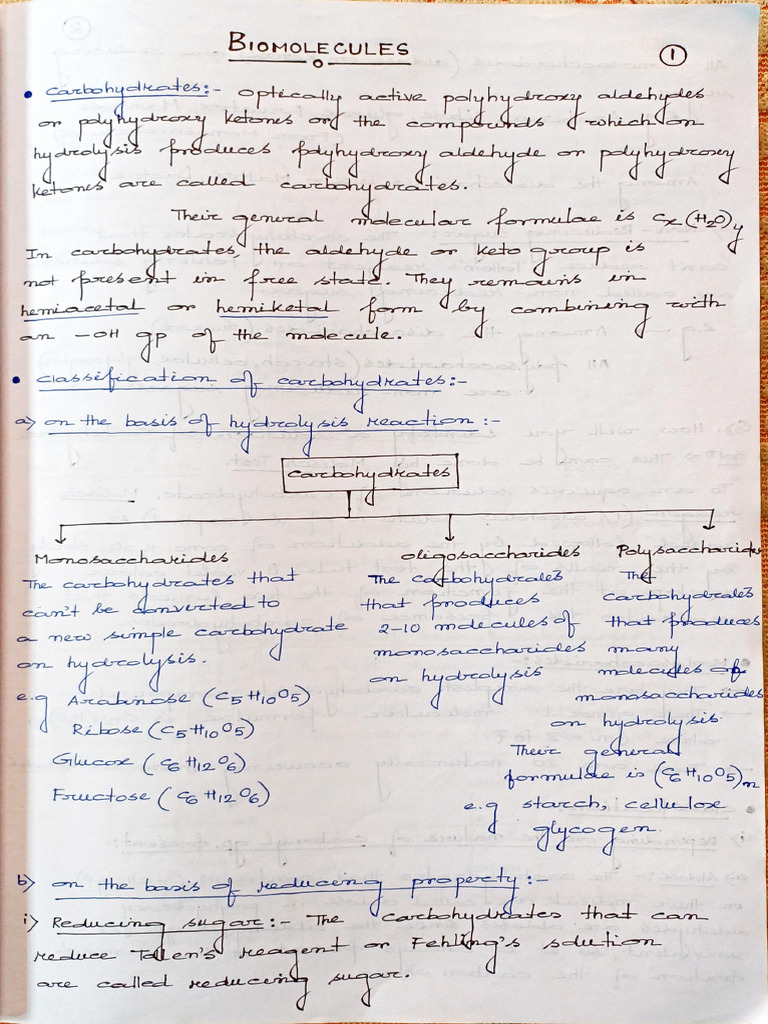 BIOMOLECULES
1
• Carbohydrates:- Optically active polyhydroxy aldehydes
or polyhydroxy ketones or the compounds which on
hydrolysis produces polyhydroxy aldehyde or polyhydroxy
ketones are called carbohydrates.
Their general molecular formulae is Cx(H2O)y
In carbohydrates, the aldehyde or keto group is
not present in free state. They remains in
hemiacetal or hemiketal form by combining with
an -OH gp of the molecule.
• Classification of carbohydrates:-
a) on the basis of hydrolysis reaction:-
Carbohydrates
Monosaccharides
The carbohydrates that
can't be converted to
a new simple carbohydrate
on hydrolysis.
e.g Arabinose (C5H10O5)
Ribose (C5H10O5)
Glucose (C6H12O6)
Fructose (C6H12O6)
Oligosaccharides
The carbohydrates
that produces
2-10 molecules of
monosaccharides
on hydrolysis
Polysaccharides
The
carbohydrates
that produces
many
molecules of
monosaccharides
on hydrolysis.
Their general
formulae is (C6H10O5)n
e.g starch, cellulose
glycogen.
b) on the basis of reducing property:-
i) Reducing sugar:- The carbohydrates that can
reduce Tollen's reagent or Fehling's solution
are called reducing sugar.